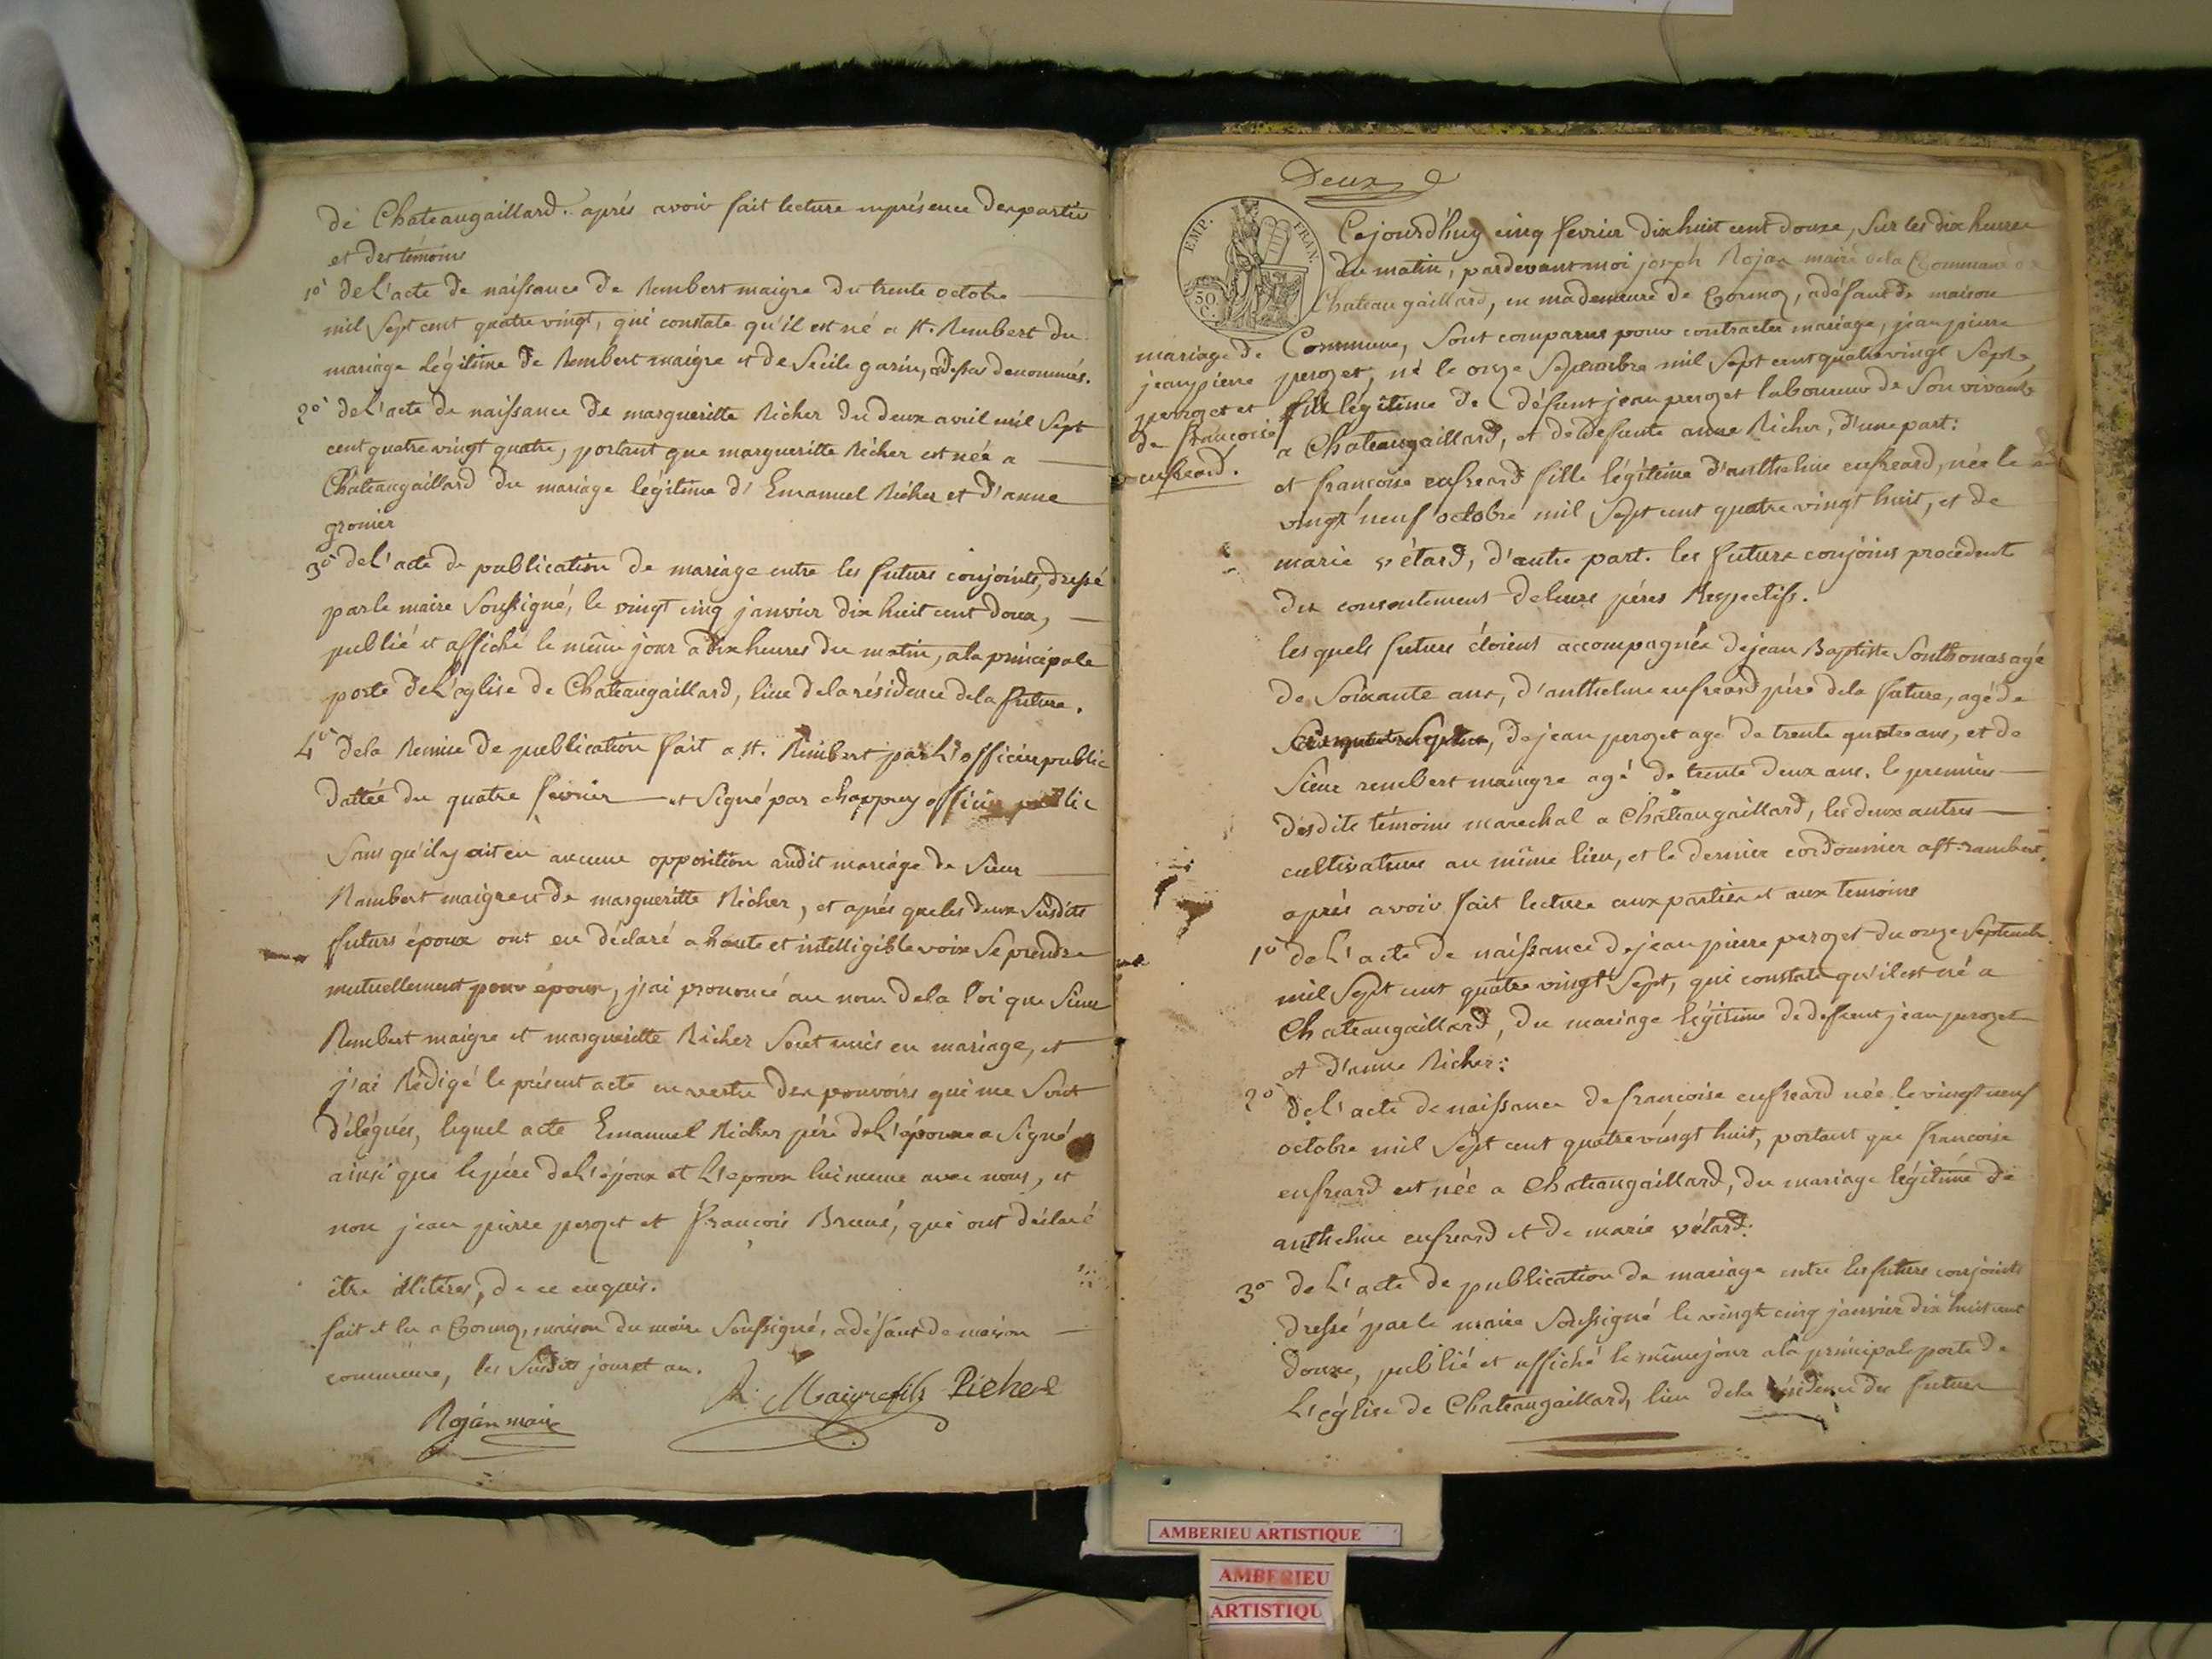 de Chateaugaillard. après avoir fait lecture en présence des parties
et des témoins
1º de l'acte de naissance de Rembert maigre du trente octobre
mil sept cent quatre vingt, qui constate qu'il est né a st. Rembert du
mariage légitime de Rembert maigre et de Secile garin, dénommés.
2º de l'acte de naissance de margueritte Richer du deux avril mil sept
cent quatre vingt quatre, portant que margueritte Richer est née a
Chateaugaillard du mariage légitime d'Emanuel Richer et d'anne
gronier
3º de l'acte de publication de mariage entre les futurs conjoints, dressé
par le maire soussigné, le vingt cinq janvier dix huit cent douze,
publié et affiché le même jour a dix heures du matin, a la principale
porte de L'église de Chateaugaillard, lieu de la résidence de la future.
4º de la Remise de publication fait a st. Rembert par L'officier public
dattée du quatre fevrier et signé par chappuy officier public
Sans qu'il y ait eu aucune opposition audit mariage de Sieur
Rambert maigre et de margueritte Richer, et après que les deux susdits
futurs époux ont eu déclaré a haute et intelligible voix se prendre
mutuellement pour époux, j'ai prononcé au nom de la loi que Sieur
Rembert maigre et margueritte Richer sont unis en mariage, et
j'ai Rédigé le présent acte en vertu des pouvoirs qui me sont
délégués, lequel acte Emanuel Richer père de L'épouse a signé
ainsi que le père de L'époux et L'epoux lui meme avec nous, et
non jean pierre perozet et françois Bruné, qui ont déclaré
être illiterés, de ce enquis.
fait et lu a Cormoz, maison du maire soussigné, a défaut de maison
commune, les susdits jour et an.
R. Maigre fils Richer
Rojan maire
Deux
EMP. FRAN.
50 C.
Cejourd'huy cinq fevrier dix huit cent douze, sur les dix heures
du matin, pardevant moi joseph Rojan maire de la Commune de
Chateaugaillard, en ma demeure de Cormoz, a défaut de maison
Commune, sont comparus pour contracter mariage, jean pierre
perozet, né le onze septembre mil sept cent quatre vingt sept,
fils légitime de défunt jean perozet laboureur de son vivant
a Chateaugaillard, et de defunte anne Richer, d'une part:
et francoise enfreard fille légitime d'anthelme enfreard, née le
vingt neuf octobre mil sept cent quatre vingt huit, et de
marie vétard, d'autre part. les futurs conjoins procèdent
du consentement de leurs pères Respectifs.
mariage de
jean pierre
perrozet et
de françoise
enfreard.
les quels futurs étoient accompagnés de jean Baptiste Sonthonas agé
de soixante ans, d'anthelme enfreard père de la future, agé de
de jean perozet agé de trente quatre ans, et de
Sieur rembert maigre agé de trente deux ans. le premier
desdits témoins marechal a Chateaugaillard, les deux autres
cultivateurs au même lieu, et le dernier cordonnier a st-rambert.
après avoir fait lecture aux parties et aux temoins
1º de L'acte de naissance de jean pierre perozet du onze septembre
mil sept cent quatre vingt sept, qui constate qu'il est né a
Chateaugaillard, du mariage légitime de defunt jean perozet
et d'anne Richer:
2º de L'acte de naissance de françoise enfreard née le vingt neuf
octobre mil sept cent quatre vingt huit, portant que françoise
enfreard est née a Chateaugaillard, du mariage légitime de
anthelme enfreard et de marie vétard:
3º de L'acte de publication de mariage entre les futurs conjoints
dressé par le maire soussigné le vingt cinq janvier dix huit cent
douze, publié et affiché le même jour a la principale porte de
L'église de Chateaugaillard, lieu de la résidence des futurs
AMBERIEU ARTISTIQUE
AMBERIEU
ARTISTIQU